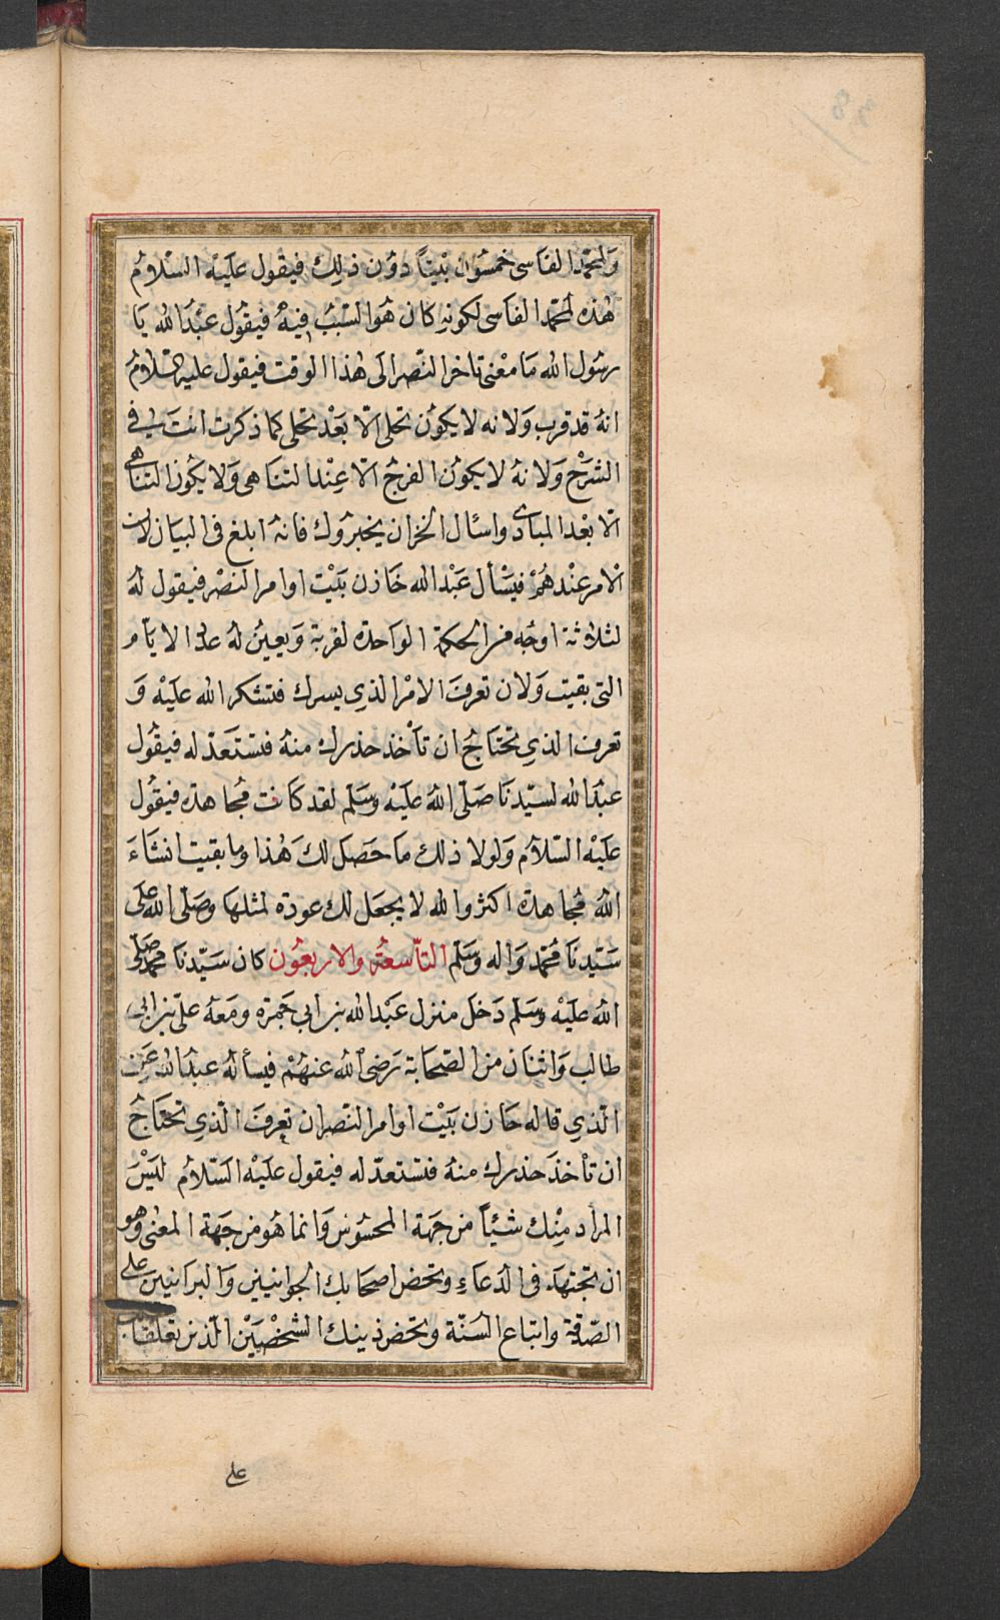 وَلمحمّد الفاسى خمسُون بْيتاً دوُن ذلِك فيقول عليْه السّلامُ
هٰذه لمحمّد الفاسى لكونهِ كان هَوا لسّببُ فيهُ فيقوُل عبْدَالله يَا
رسُول الله مَا معْنى تاخر النّصر الَى هٰذا الوقت فيقول عليه السّلامُ
انهُ قد قرب وَلانه لا يكوُن تحلى الّا بَعْد تخلى كما ذكرت انتَ فى
الشرْح وَلانهُ لا يكونُ الفرجُ الّا عِنْد التنَاهى وَلا يكوُن التنَاهى
الّا بعْد المبادى واسئال الخزان يخبرُوك فانهُ ابلغ فى البيَان لان
الامر عنْدهُمْ فيسْأل عَبْدالله خَازن بَيْت اوامر النصْر فيقول لهُ
لثلاثة اوجُه من الحكمة الواحدة لقربة وَيعينُ لهُ عدد الايّام
التى بقيت وَلان تعرفَ الامْر الذى يسرك فتشكر الله عليْه وَ
تعرف الذى تحتاجُ ان تأخذ حذرك منهُ فتستَعدّ له فيقُول
عبْدَالله لسيّدنَا صَلّى اللهُ عليْه وسَلم لقد كانت مُجاهدة فيقُول
عليْه السّلاَم وَلولا ذلك مَا حَصَل لكَ هٰذا وما بقيت انشاءَ
اللهُ مُجاهدة اكثر والله لا يجعَل لك عودة لمثلهَا وصَلّى الله على
سَيّدنَا محمّد وَاله وسَلم التّاسعَة والاربعُون كان سَيّدنَا محمّد صَلّى
اللهُ عليْه وسَلم دَخل منزل عَبْدالله بن ابى جَمرة ومَعهُ علىّ بن ابى
طالب وَاثنان من الصّحَابة رَضى الله عنهُمْ فيسألهُ عبدُالله عَن
الّذى قاله خازن بَيْت اوامر النّصر ان تعرفَ الّذى تحتَاجُ
ان تأخذَ حذرك منهُ فتستعدّ له فيقول عليْه السّلامُ ليْسَ
المراد مِنْك شيئاً من جهَة المحسُوس وَانما هُو من جهَة المعنى وَهو
ان تجتهدَ فى الدّعَاءِ وتحض اصحابك الجوانيين وَالبرانيين على
الصّدقة واتباع السُنّة وتحض ذينك الشخْصَيْن الّذين تعلقا بك
على